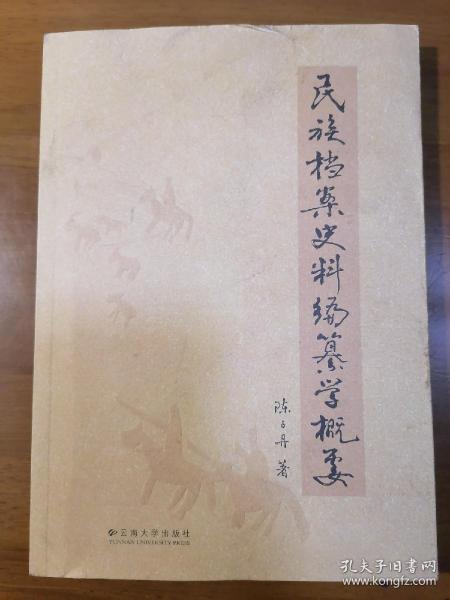 民族档案史料编纂学概要
陈子丹 著
云南大学出版社
YUNNAN UNIVERSITY PRESS
孔夫子旧书网
www.kongfz.com